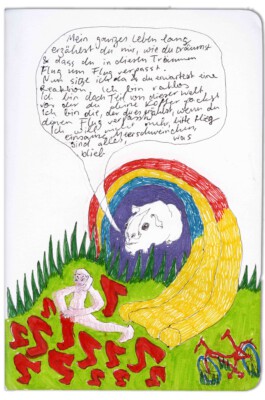 Mein ganzes Leben lang
erzählst du mir, wie du träumst
& dass du in diesen Träumen
Flug um Flug verpasst.
Nun sitze ich da & du erwartest eine
Reaktion. Ich bin ratlos
Ich bin doch Teil von dieser Welt,
vor der du deine Koffer packst
Ich bin die, der dies erzählst, wenn du
deinen Flug verpasst
Ich will nicht mehr, bitte flieg
einsame Meerschweinchen
sind alles, was
blieb